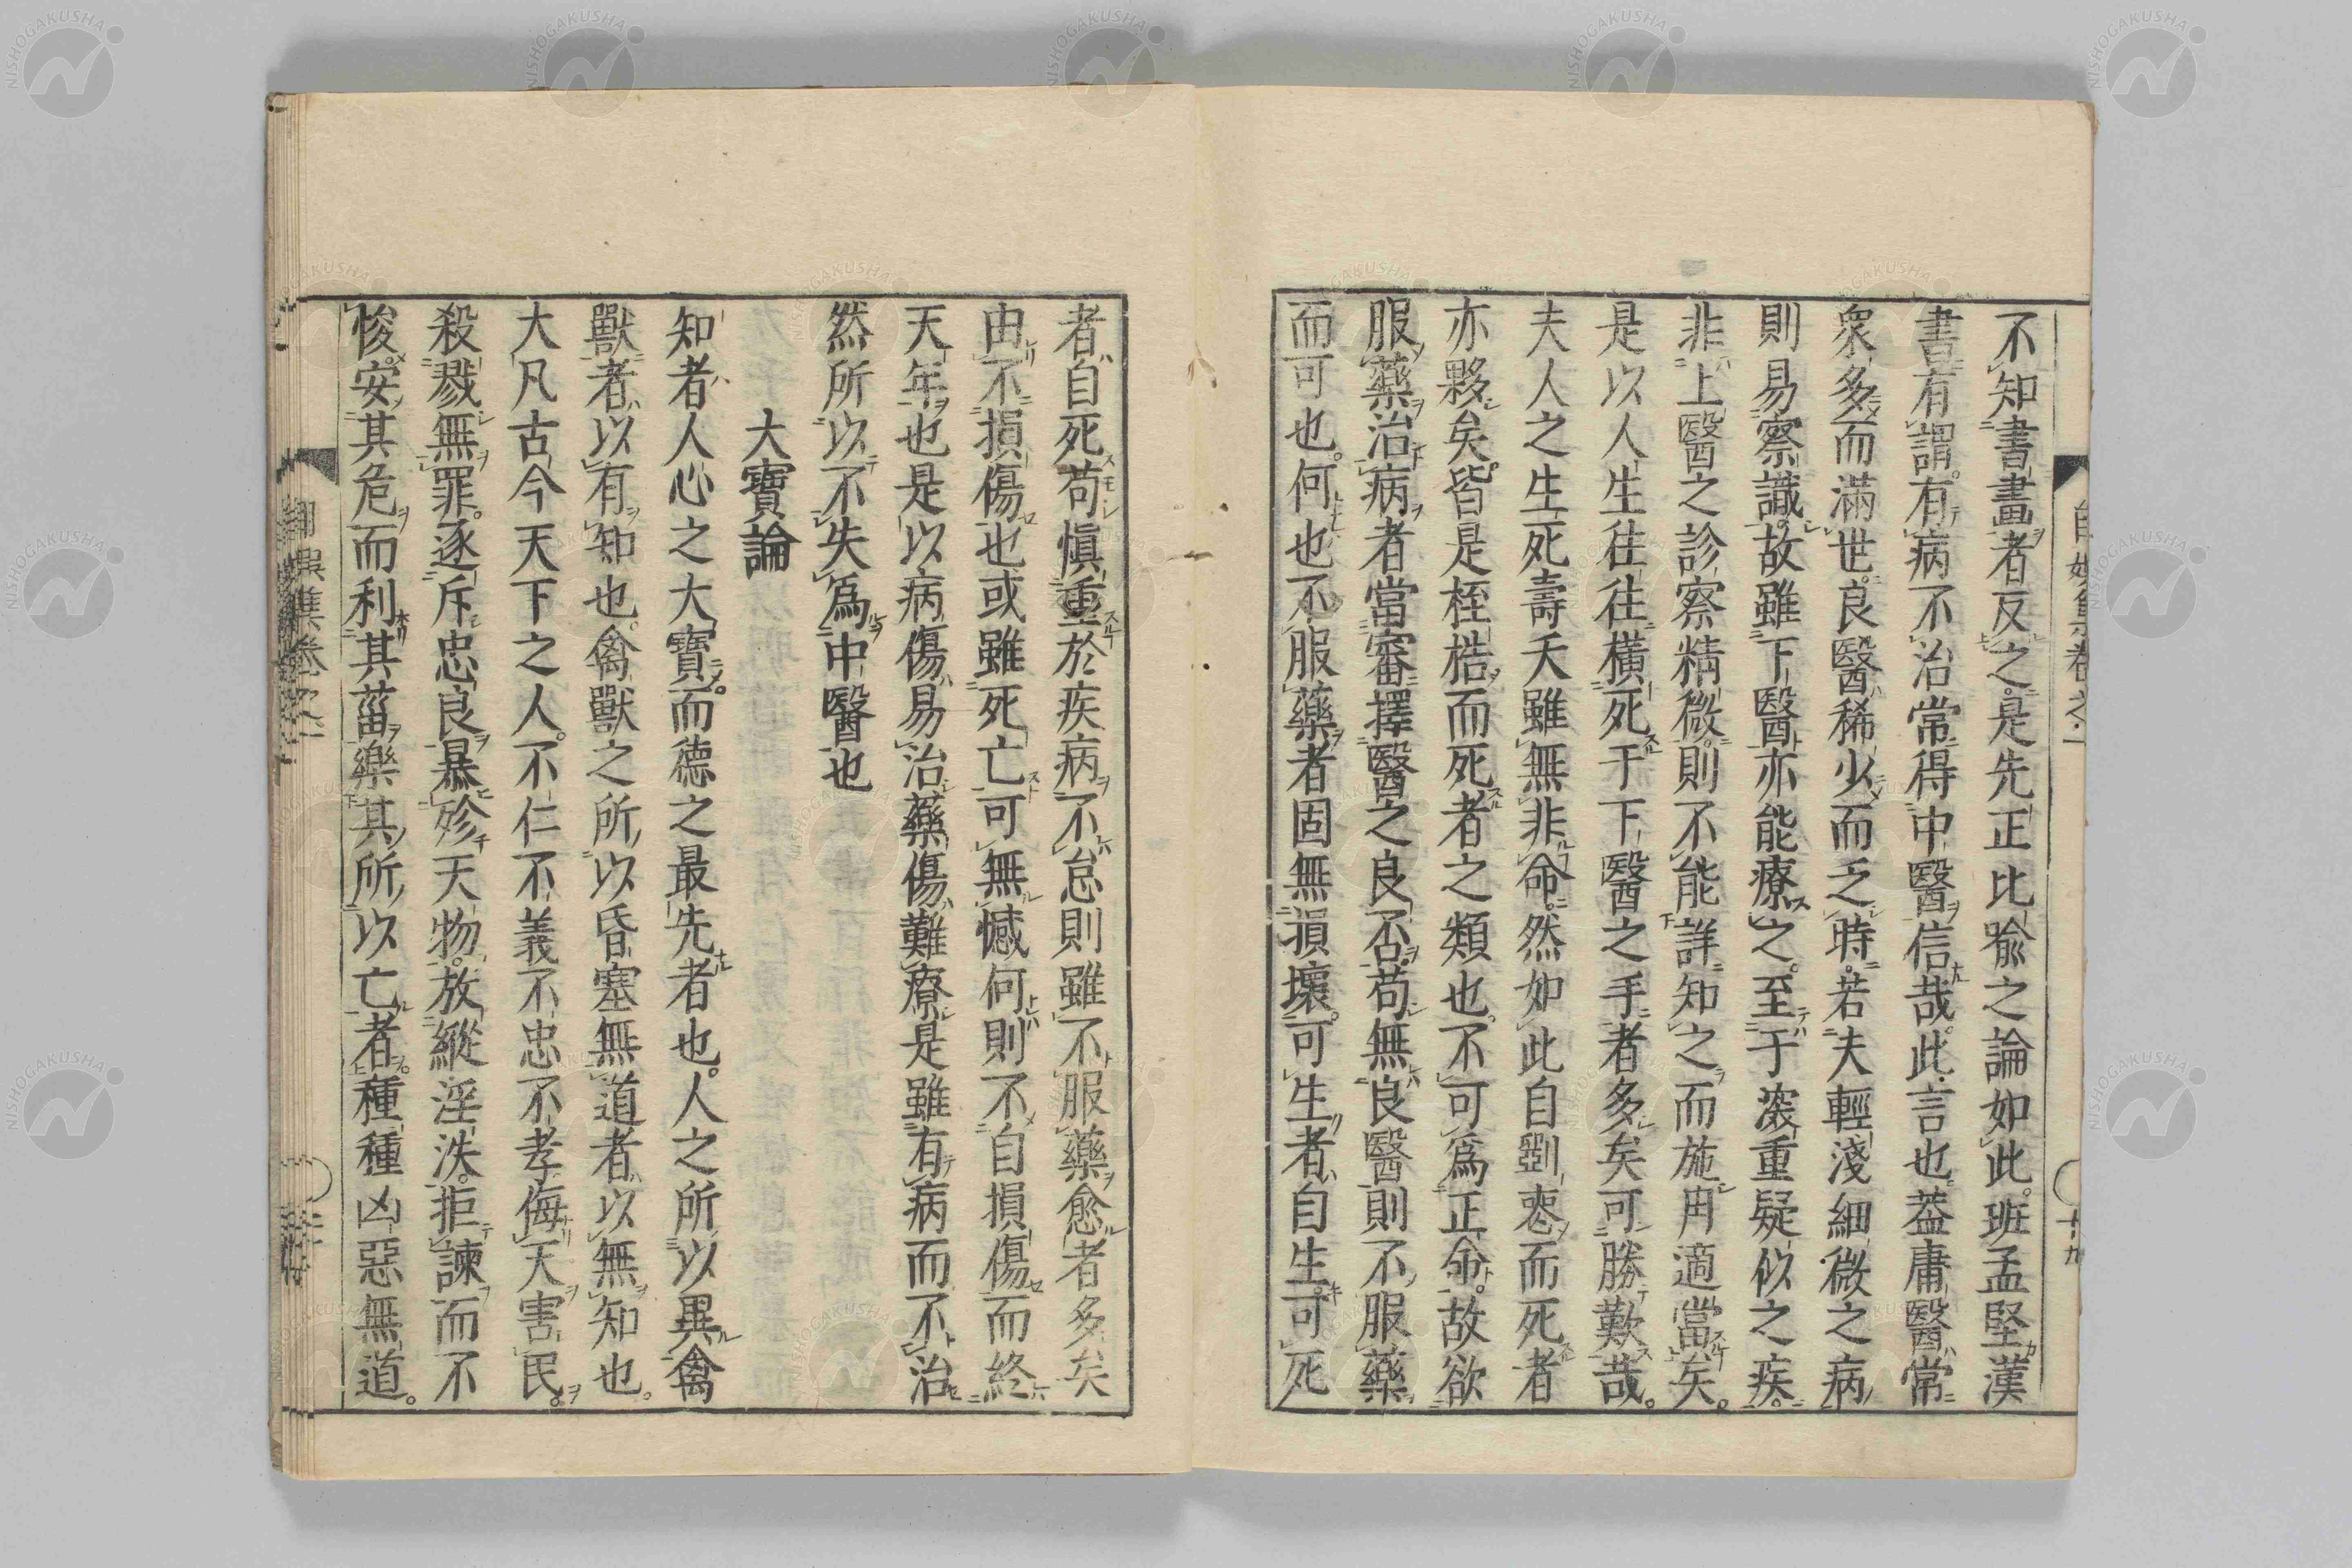 不知書畫者反之是先正比喩之論如此班孟堅漢
書有謂有病不治常得中醫信哉此言也蓋庸醫常
衆多而滿世良醫稀少而乏時若夫輕淺細微之病
則易察識故雖下醫亦能療之至于深重疑似之疾
非上醫之診察精微則不能詳知之而施用適當矣
是以人生往往橫死于下醫之手者多矣可勝歎哉
夫人之生死壽夭雖無非命然如此自劉悤而死者
亦夥矣皆是桎梏而死者之類也不可爲正命故欲
服藥治病者當審擇醫之良否苟無良醫則不服藥
而可也何也不服藥者固無損壞可生者自生可死
者自死苟愼重於疾病不怠則雖不服藥愈者多矣
由不損傷也或雖死亡可無憾何則不自損傷而終
天年也是以病傷易治藥傷難療是雖有病而不治
然所以不失爲中醫也
大寶論
知者人心之大寶而德之最先者也人之所以異禽
獸者以有知也禽獸之所以昏塞無道者以無知也
大凡古今天下之人不仁不義不忠不孝侮天害民
殺戮無罪逐斥忠良暴殄天物放縱淫泆拒諫而不
悛安其危而利其菑樂其所以亡者種種凶惡無道